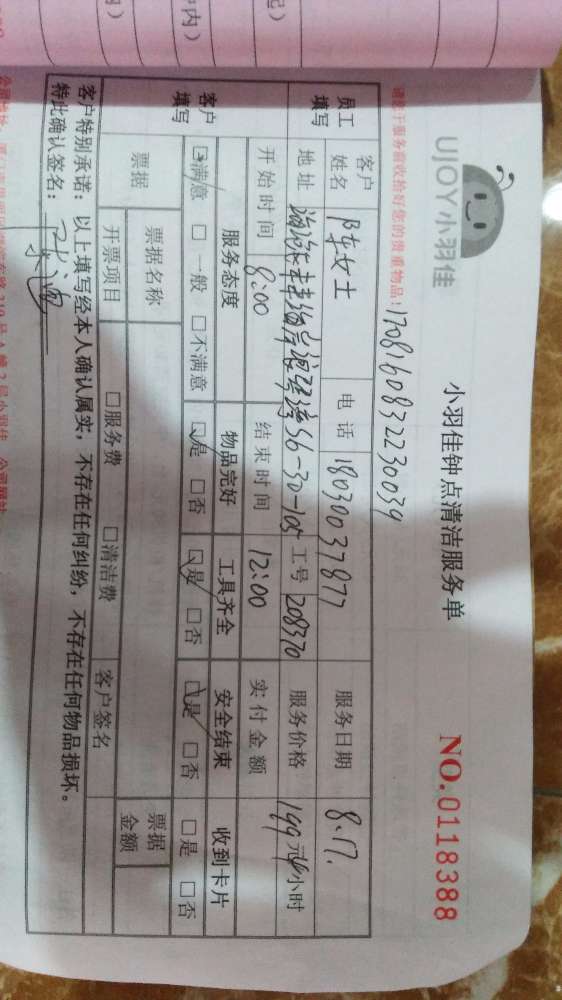 UJOY小羽佳
小羽佳钟点清洁服务单
NO.0118388
1708160832230039
请您于服务前收拾好您的贵重物品！
员工填写
客户姓名 陈女士 电话 18030037877 服务日期 8.17.
地址 56-30-105 工号 208370 服务价格 199元/4小时
开始时间 8:00 结束时间 12:00 实付金额
客户填写
服务态度 物品完好 工具齐全 安全结束 收到卡片
☑满意 □一般 □不满意 ☑是 □否 ☑是 □否 ☑是 □否 □是 □否
票据 票据名称 客户签名 票据金额
开票项目 □服务费 □清洁费
客户特别承诺：以上填写经本人确认属实，不存在任何纠纷，不存在任何物品损坏。
特此确认签名：